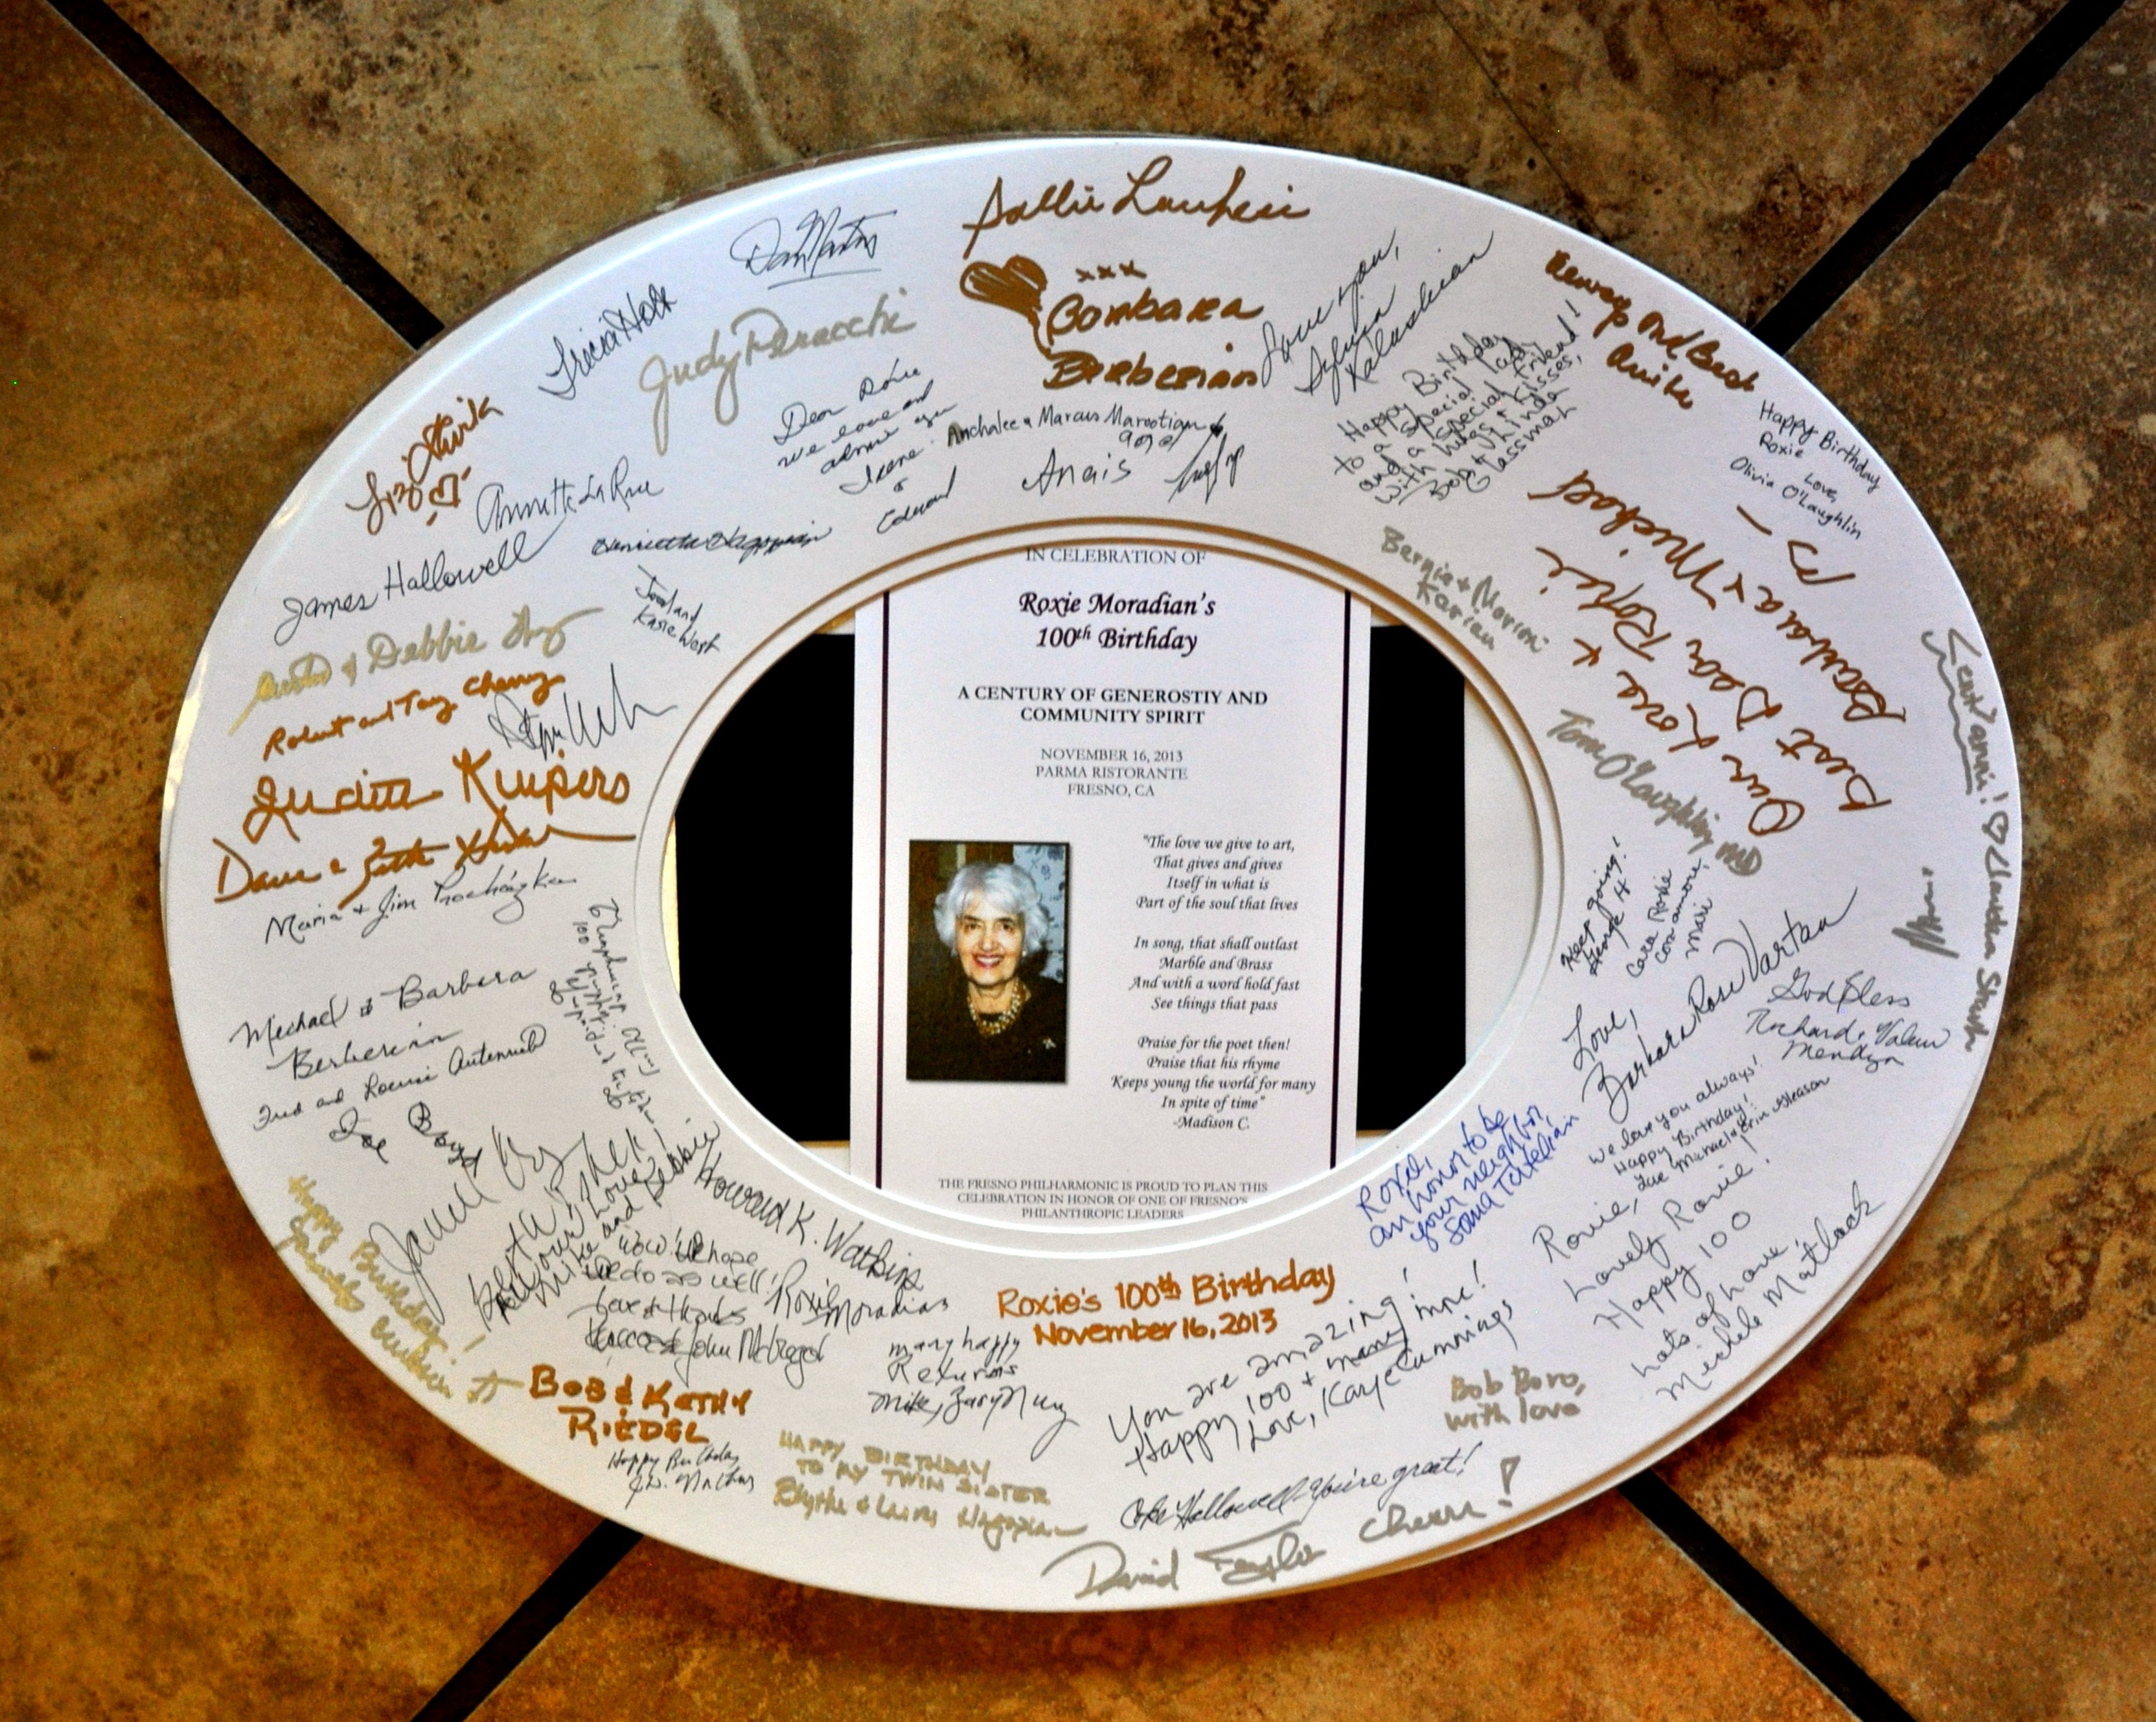 IN CELEBRATION OF
Roxie Moradian's
100th Birthday
A CENTURY OF GENEROSTIY AND
COMMUNITY SPIRIT
NOVEMBER 16, 2013
PARMA RISTORANTE
FRESNO, CA
"The love we give to art,
That gives and gives
Itself in what is
Part of the soul that lives
In song, that shall outlast
Marble and Brass
And with a word hold fast
See things that pass
Praise for the poet then!
Praise that his rhyme
Keeps young the world for many
In spite of time"
-Madison C.
THE FRESNO PHILHARMONIC IS PROUD TO PLAN THIS
CELEBRATION IN HONOR OF ONE OF FRESNO'S
PHILANTHROPIC LEADERS
Sallie
xxx
Barbara
Berberian
Love you,
Sylvia
Kalashian
Happy Birthday
to a special lady
and a special friend!
with hugs & kisses,
Bob & Linda
Glassman
Always and Best
Happy Birthday
Roxie
Love,
Olivia O'Laughlin
Our Love &
Best Dear Roxie
Barbara & Michael
Bernie + Marion
Karian
Tom O'Laughlin MD
Cent'anni! Claudia
Keep going!
George
Cara Roxie
con amore,
Mari
Love,
Barbara Rose Vartan
God Bless
Richard & Valerie
We love you always!
Happy Birthday!
Michael & Erin Gleason
Roxie,
an honor to be
your neighbor,
Roxie,
Lovely Roxie!
Happy 100
Lots of love,
Michele Matlock
Bob Boro,
with love
You are amazing!
Happy 100 + many more!
Love, Kaye Cummings
Coke Hallowell-You're great!
David Taylor Cheers!
Roxie's 100th Birthday
November 16, 2013
many happy
Returns
HAPPY BIRTHDAY
TO MY TWIN SISTER
Blythe & Hagopian
BOB & KATHY
RIEDEL
Happy Birthday
Happy Birthday!
Howard K. Watkins
Roxie Moradian
Wow! We hope
we do as well!
Love & thanks
John McGregor
All our love
Mike and Debbie
Janell
Joe
Boyd
Fred and
Michael & Barbara
Berberian
Maria & Jim Prochazka
Dave &
Judith Kuipers
Robert and Tary Cherry
& Debbie
James Hallowell
Annette LaRue
Liz
Tricia
Dan
Judy Peracchi
Dear Roxie
we love and
admire you
Irene
&
Edward
Anchalee & Marcus Marootian
Anais
Henrietta Hagopian
and
Kasie West